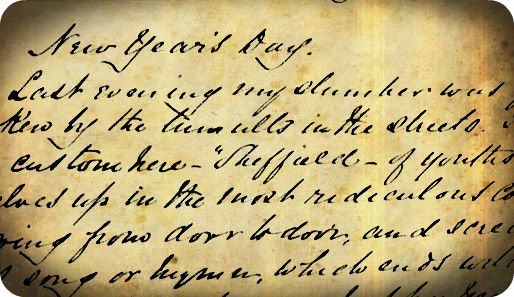 New Year's Day.
Last evening my slumber was
ken by the tumults in the streets.
custom here - "Sheffield - of youths
elves up in the most ridiculous co
ing from door to door, and scree
song or hymn, which ends wi